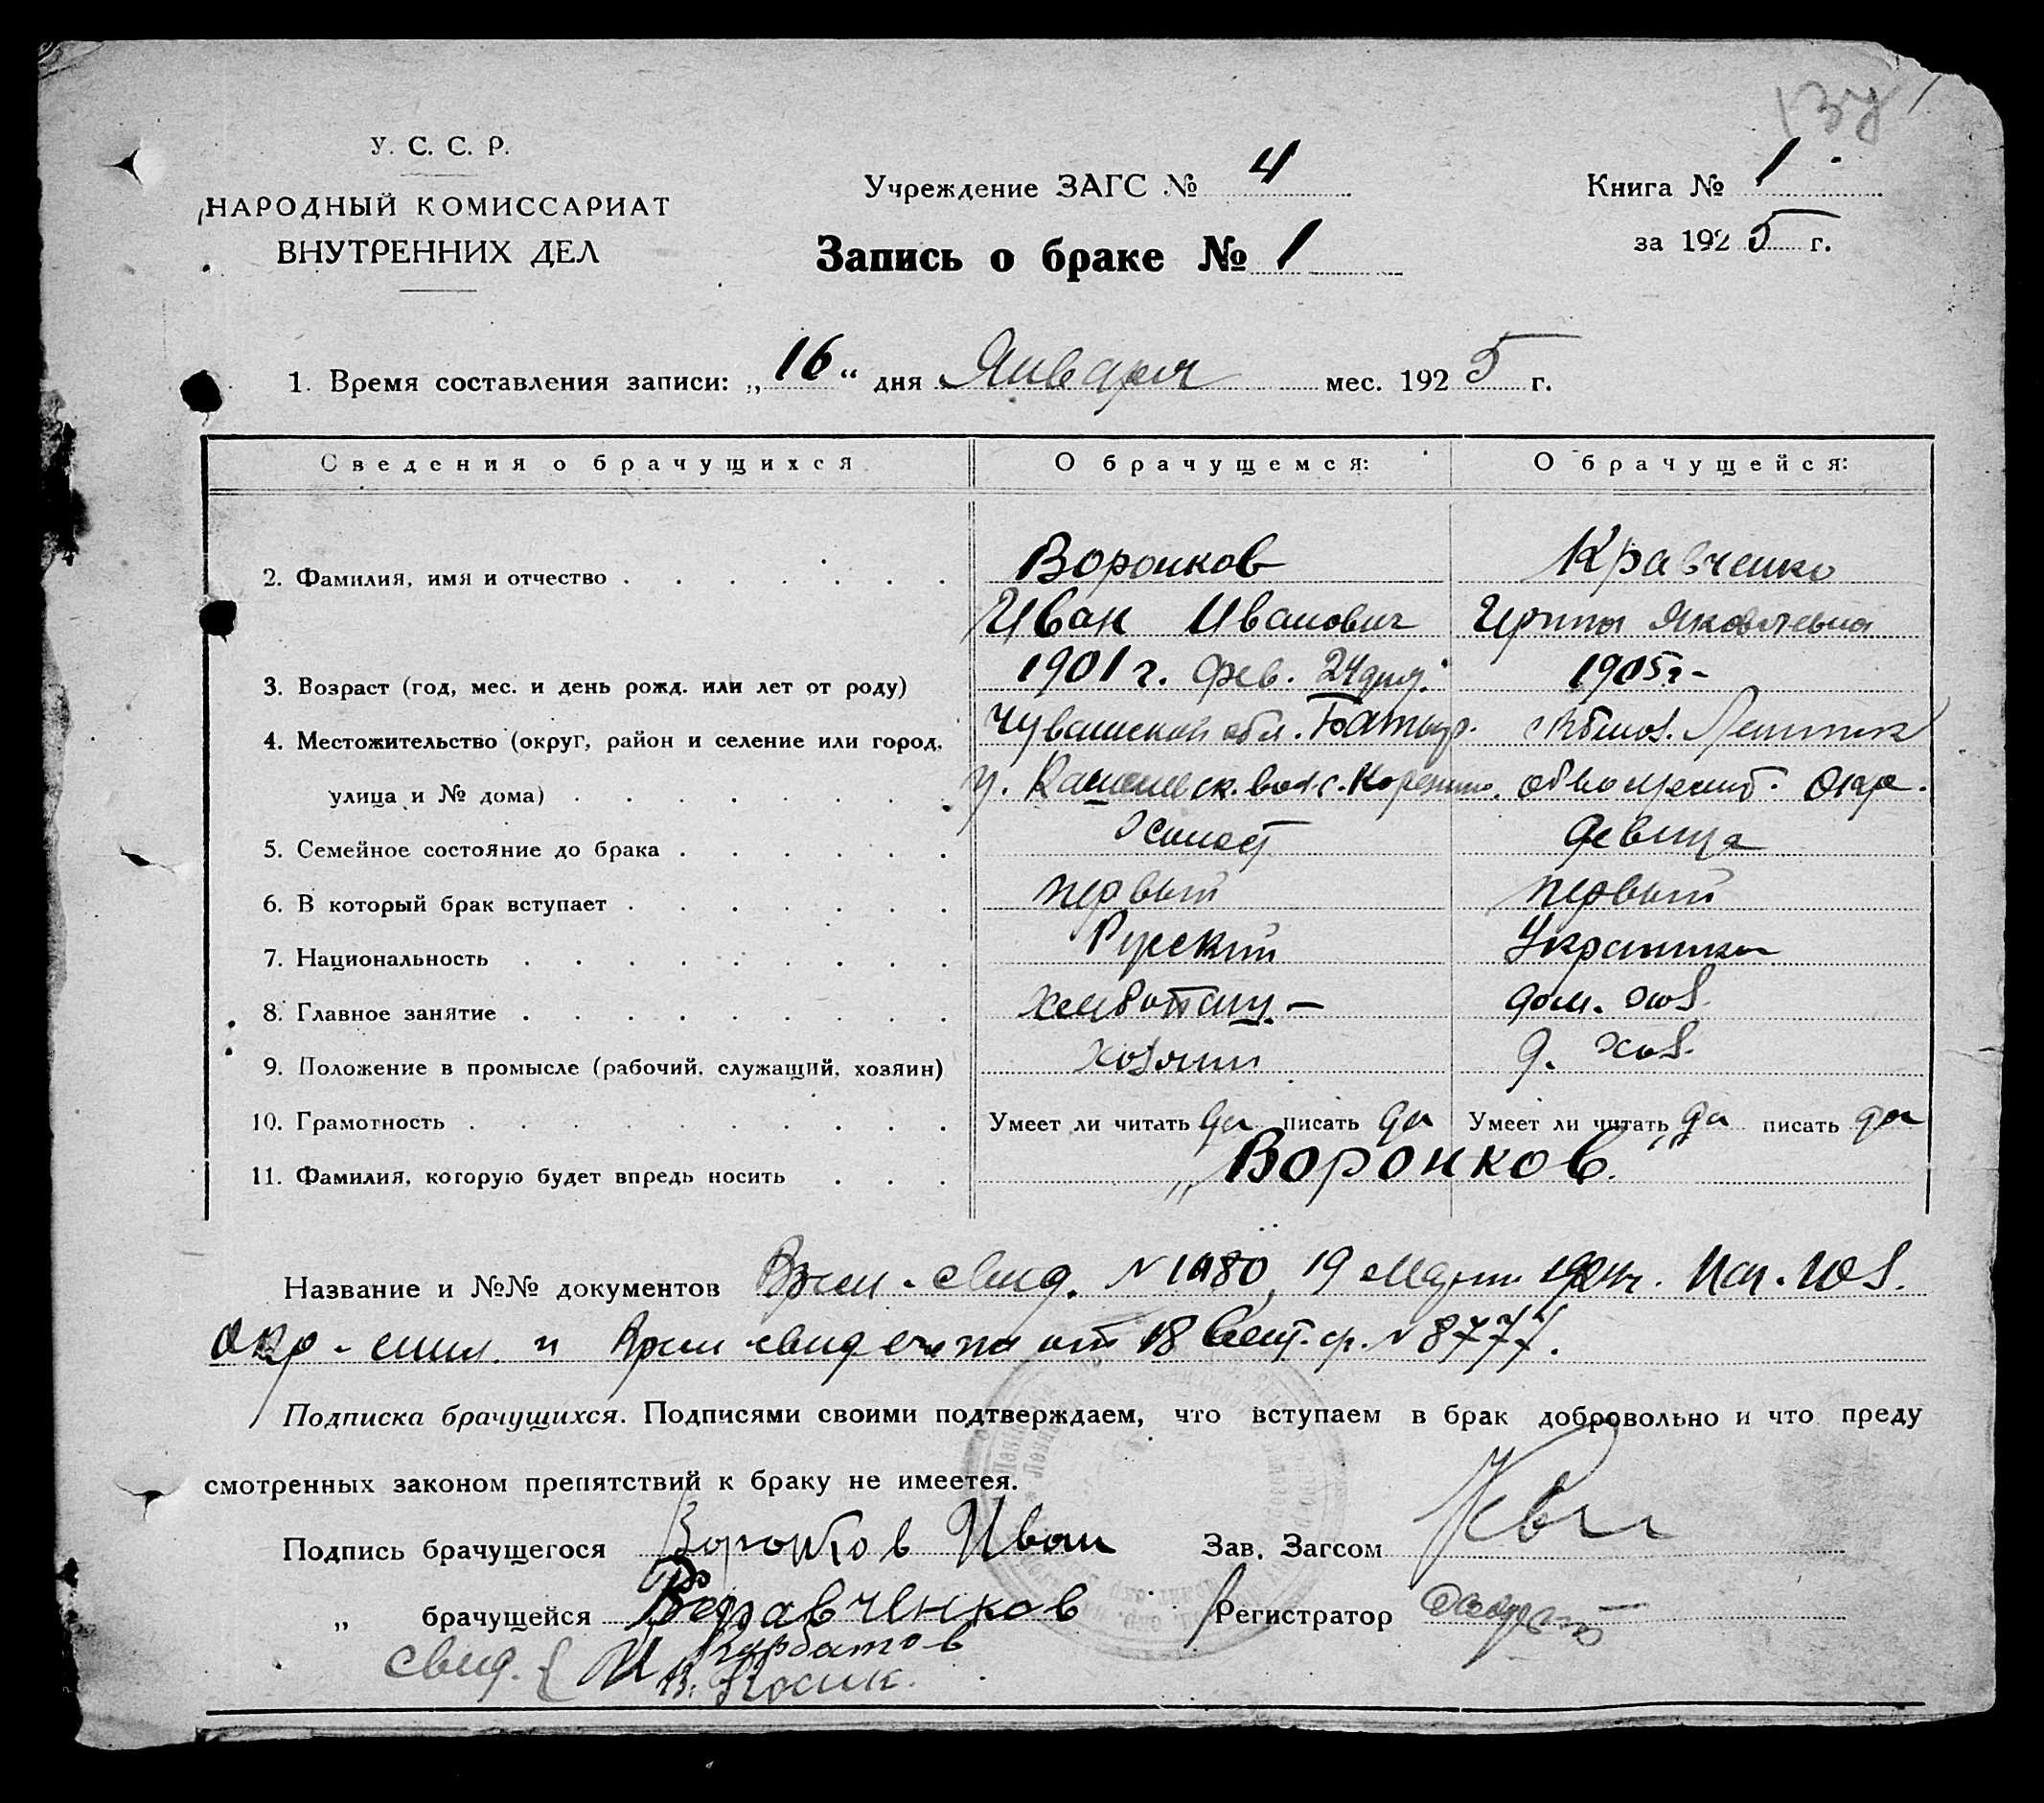 У. С. С. Р.
НАРОДНЫЙ КОМИССАРИАТ
ВНУТРЕННИХ ДЕЛ
Учреждение ЗАГС № 4
Книга № 1
Запись о браке № 1
за 1925 г.
1. Время составления записи: „16“ дня Января мес. 1925 г.
Сведения о брачущихся О брачущемся: О брачущейся:
2. Фамилия, имя и отчество Воронков Кравченко
Иван Иванович Ирина Яковлевна
3. Возраст (год, мес. и день рожд. или лет от роду) 1901 г. фев. 24 дня. 1905 г -
4. Местожительство (округ, район и селение или город, Чувашской обл. Батыр.
улица и № дома) у. вол. с. Окр.
5. Семейное состояние до брака Холост девица
6. В который брак вступает первый первый
7. Национальность Русский Украинка
8. Главное занятие хлебопашц. — дом. хоз.
9. Положение в промысле (рабочий, служащий, хозяин) хозяин д. хоз.
10. Грамотность Умеет ли читать да писать да Умеет ли читать да писать да
11. Фамилия, которую будет впредь носить „Воронков.“
Название и №№ документов свид. N 1080, 19 г.
окр - и от 18 Сент. N 8777.
Подписка брачущихся. Подписями своими подтверждаем, что вступаем в брак добровольно и что преду
смотренных законом препятствий к браку не имеетея.
Подпись брачущегося Воронков Иван Зав. Загсом
„ брачущейся Регистратор
свид. { И Курбатов
В. Косик.